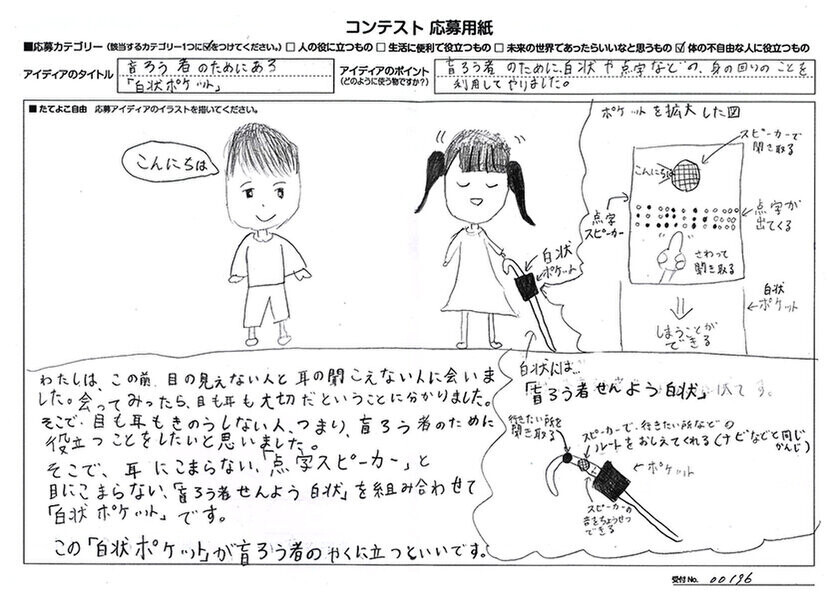 コンテスト 応募用紙
■応募カテゴリー(該当するカテゴリー1つに☑をつけてください。) □ 人の役に立つもの □ 生活に便利で役立つもの □ 未来の世界であったらいいなと思うもの ☑ 体の不自由な人に役立つもの
アイディアのタイトル
盲ろう者のためにある
「白状ポケット」
アイディアのポイント
(どのように使う物ですか?)
盲ろう者のために、白状や点字などの、身の回りのことを
利用してやりました。
■ たてよこ自由 応募アイディアのイラストを描いてください。
こんにちは
白状
ポケット
ポケットを拡大した図
スピーカーで
聞き取る
こんにちは
点字
スピーカー
点字が
出てくる
さわって
聞き取る
白状
ポケット
しまうことが
できる
わたしは、この前、目の見えない人と耳の聞こえない人に会いま
した。会ってみたら、目も耳も大切だということに分かりました。
そこで、目も耳もきのうしない人、つまり、盲ろう者のために
役立つことをしたいと思いました。
そこで、耳にこまらない、「点字スピーカー」と
目にこまらない、「盲ろう者せんよう白状」を組み合わせて
「白状ポケット」です。
この「白状ポケット」が盲ろう者のやくに立つといいです。
白状には…
「盲ろう者せんよう白状」
行きたい所を
聞き取る
スピーカーで、行きたい所などの
ルートをおしえてくれる(ナビなどと同じ
かんじ)
ポケット
スピーカーの
音をちょうせつ
できる
受付No. 00196